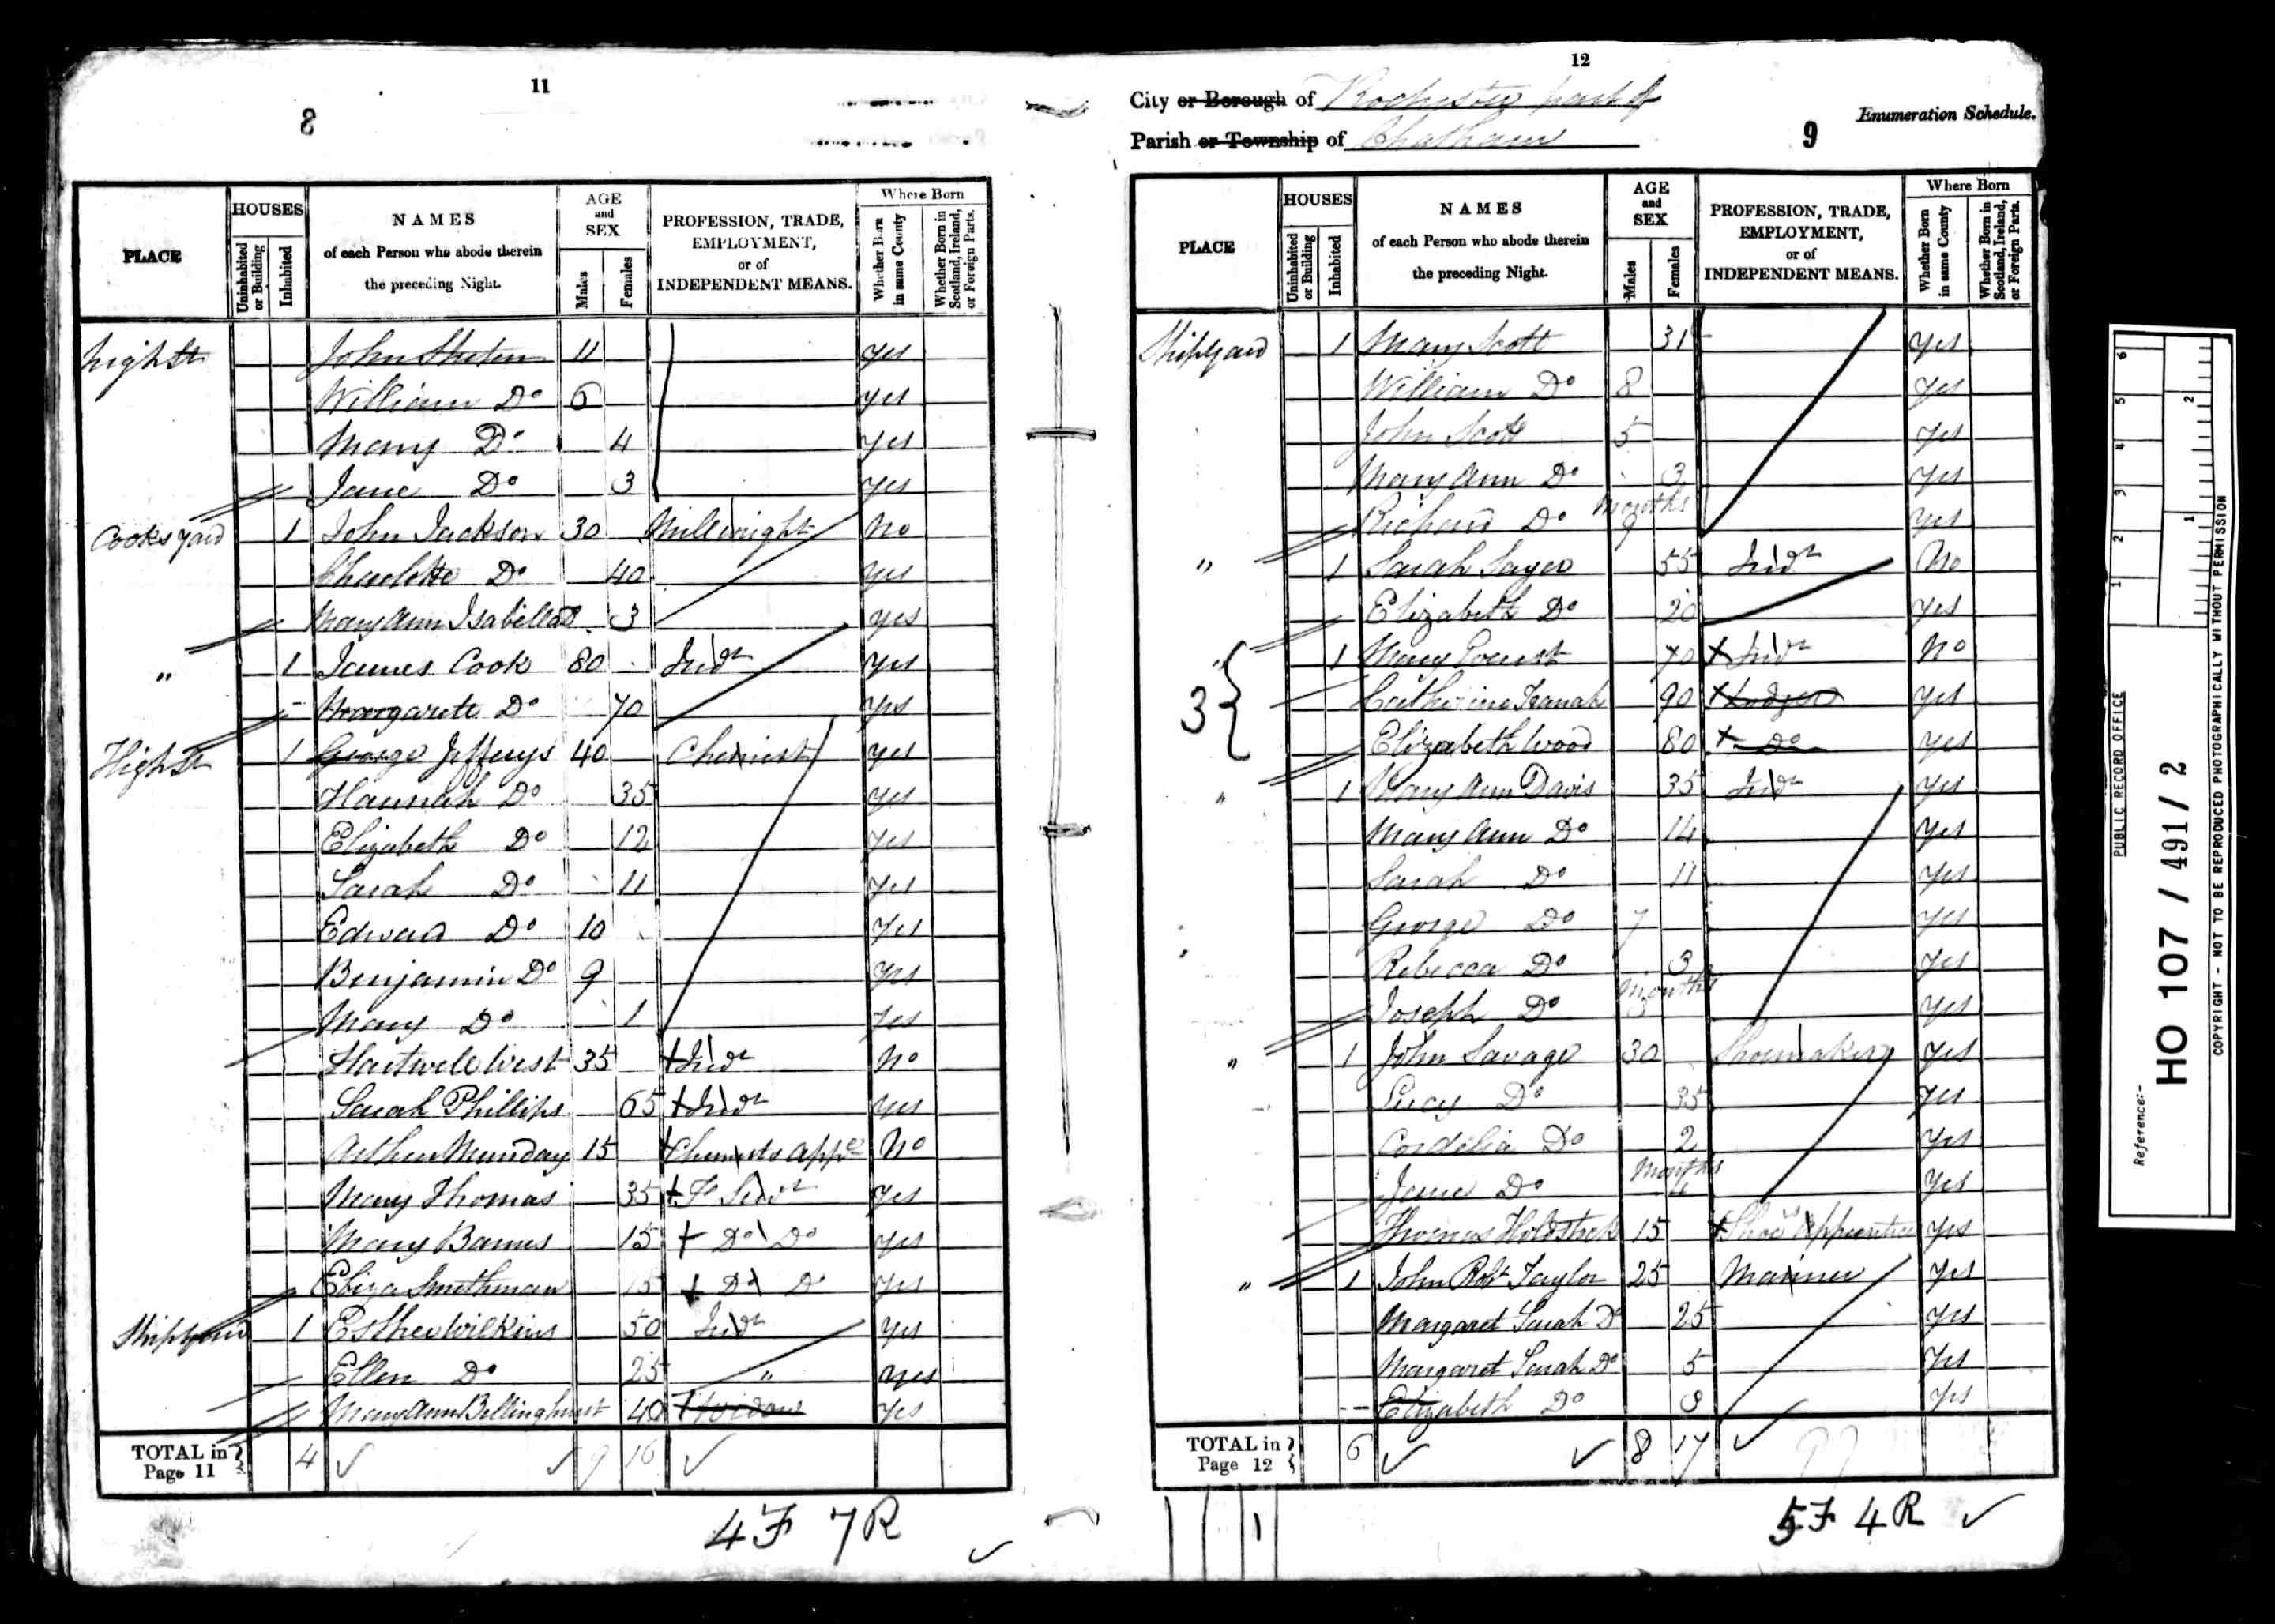 11
8
PLACE
HOUSES
Uninhabited or Building
Inhabited
NAMES
of each Person who abode therein
the preceding Night.
AGE
and
SEX
Males
Females
PROFESSION, TRADE,
EMPLOYMENT,
or of
INDEPENDENT MEANS.
Where Born
Whether Born in same County
Whether Born in Scotland, Ireland, or Foreign Parts.
High St John 11 yes
William Do 6 yes
Mary Do 4 yes
Jane Do 3 yes
Cooks yard 1 John Jackson 30 Millwright No
Charlotte Do 40 yes
Mary Ann Isabella Do 3 yes
" 1 James Cook 80 Indt yes
Margarete Do 70 yes
High St 1 George Jefferys 40 Chemist yes
Hannah Do 35 yes
Elizabeth Do 12 yes
Sarah Do 11 yes
Edward Do 10 yes
Benjamin Do 9 yes
Mary Do 1 yes
Hartwell West 35 + Indt No
Sarah Phillips 65 + Indt yes
Arthur Munday 15 + Chemists appe No
Mary Thomas 35 + F Servt yes
Mary Barnes 15 + Do Do yes
Eliza Smithman 15 + Do Do yes
Shipyard 1 Esther Wilkins 50 Indt yes
Ellen Do 25 " yes
Mary Ann Billinghurst 40 + Widow yes
TOTAL in
Page 11 4 9 16
4F 7R
12
City or Borough of Rochester part of
Parish or Township of Chatham
Enumeration Schedule.
9
PLACE
HOUSES
Uninhabited or Building
Inhabited
NAMES
of each Person who abode therein
the preceding Night.
AGE
and
SEX
Males
Females
PROFESSION, TRADE,
EMPLOYMENT,
or of
INDEPENDENT MEANS.
Where Born
Whether Born in same County
Whether Born in Scotland, Ireland, or Foreign Parts.
Shipyard 1 Mary Scott 31 yes
William Do 8 yes
John Scott 5 yes
Mary Ann Do 3 yes
Richard Do months 9 yes
" 1 Sarah Sayer 55 Indt No
Elizabeth Do 20 yes
" 1 Mary 70 + Indt No
3 Catherine 90 + Lodger yes
Elizabeth Wood 80 + Do yes
" 1 Mary Ann Davis 35 Indt yes
Mary Ann Do 14 yes
Sarah Do 11 yes
George Do 7 yes
Rebecca Do 3 yes
Joseph Do months yes
" 1 John Savage 30 Shoemaker yes
Lucy Do 35 yes
Cordelia Do 2 yes
Jane Do months 4 yes
Thomas Holdstock 15 + Shoe Apprentice yes
" 1 John Robt Taylor 25 Mariner yes
Margaret Sarah Do 25 yes
Margaret Sarah Do 5 yes
Elizabeth Do 3 yes
TOTAL in
Page 12 6 8 17
5F 4R
PUBLIC RECORD OFFICE
1 2 3 4 5 6
1 2
Reference:-
HO 107 / 491 / 2
COPYRIGHT - NOT TO BE REPRODUCED PHOTOGRAPHICALLY WITHOUT PERMISSION